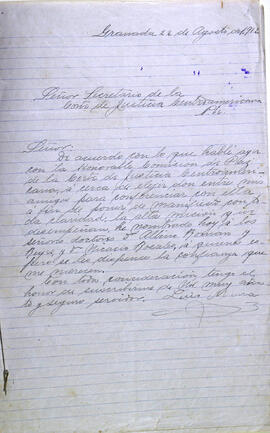 Granada 22 de Agosto, de 1912
Señor Secretario de la
Corte de Justicia Centroamericana
Pte.
Señor:
De acuerdo con lo que hablé ayer
con la Honorable Comision de Paz
de la Corte de Justicia Centroameri-
cana, á cerca de elejir don entre mis
amigos para conferenciar con ella
a fin de poner de manifiesto con to-
da claridad, la alta mision q. us.
desempeñan, he nombrado hoy á los
señores doctores D.
Reyes, y Dn
pero se les dispense la confianza que
me merecen.
Con toda consideración tengo el
honor de suscribirme de Ud. muy aten-
to y seguro servidor. Luis Mena